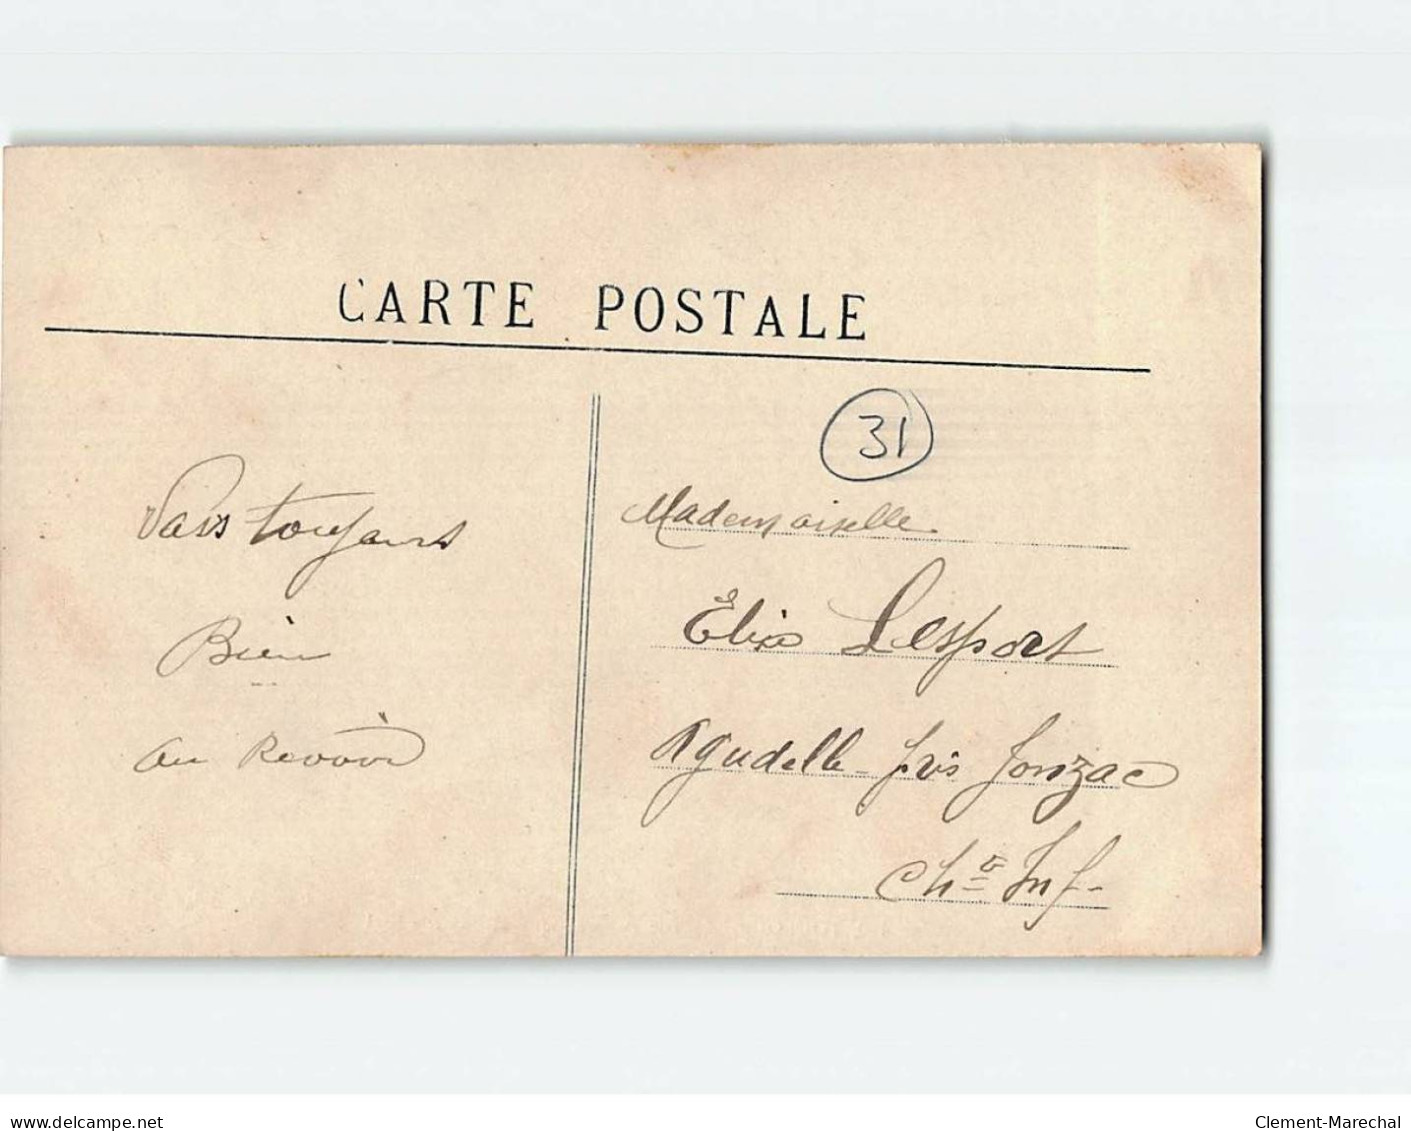 CARTE POSTALE
31
toujours
Bien
au Revoir
Mademoiselle
Lesport
Agudelle près Jonzac
Chte Inf-
www.delcampe.net
Clement-Marechal